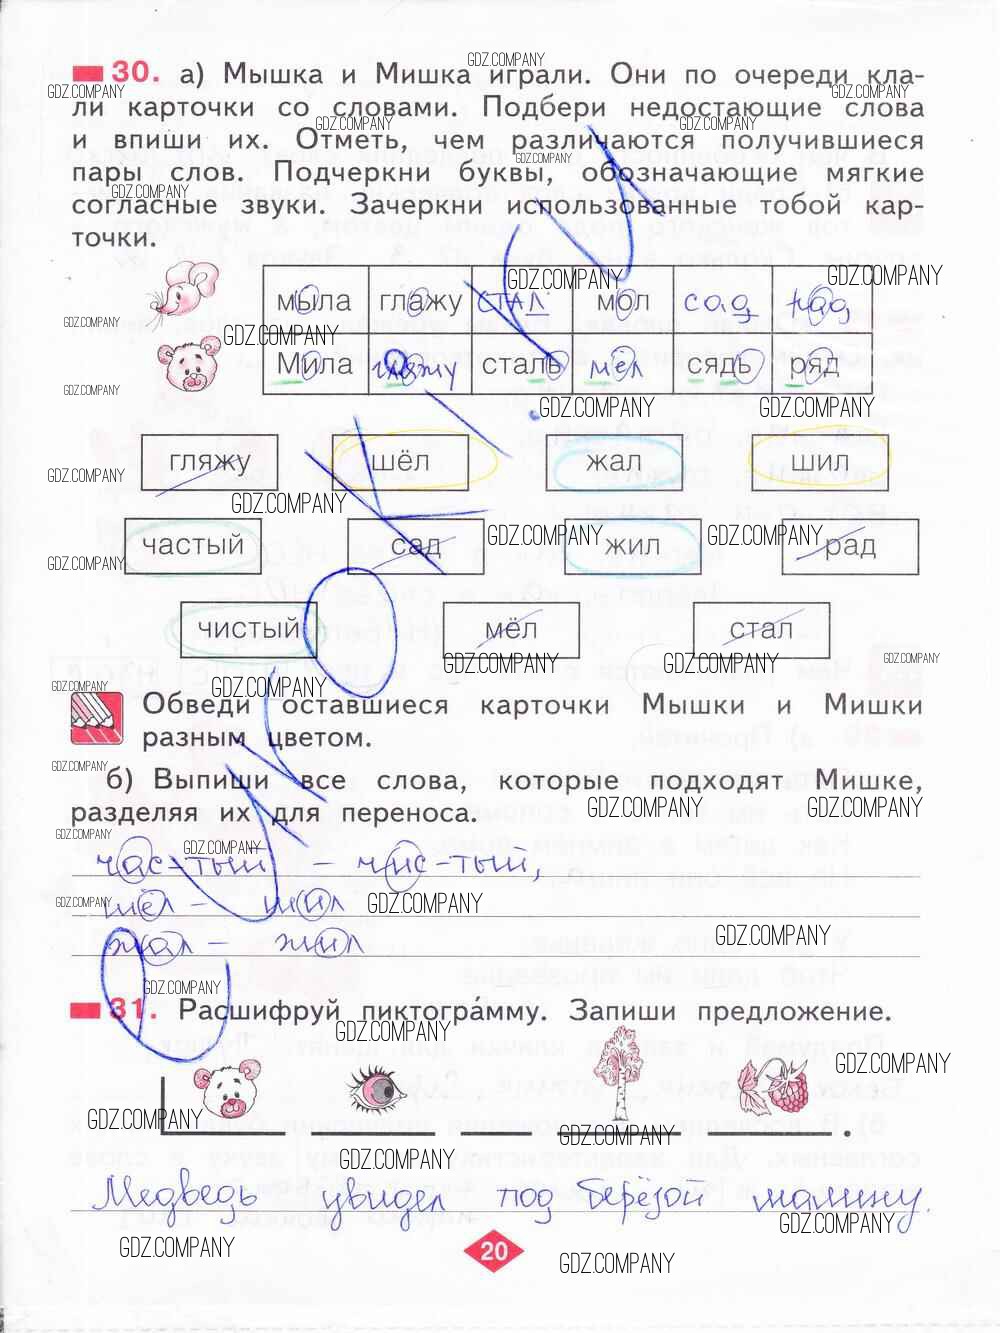 30. а) Мышка и Мишка играли. Они по очереди кла-
ли карточки со словами. Подбери недостающие слова
и впиши их. Отметь, чем различаются получившиеся
пары слов. Подчеркни буквы, обозначающие мягкие
согласные звуки. Зачеркни использованные тобой кар-
точки.
мыла глажу СТАЛ мол сад рад
Мила гляжу сталь мёл сядь ряд
гляжу шёл жал шил
частый сад жил рад
чистый мёл стал
Обведи оставшиеся карточки Мышки и Мишки
разным цветом.
б) Выпиши все слова, которые подходят Мишке,
разделяя их для переноса.
час-тый – чис-тый,
шёл – шил
жал – жил
31. Расшифруй пиктогра́мму. Запиши предложение.
Медведь увидел под берёзой малину.
20
GDZ.COMPANY